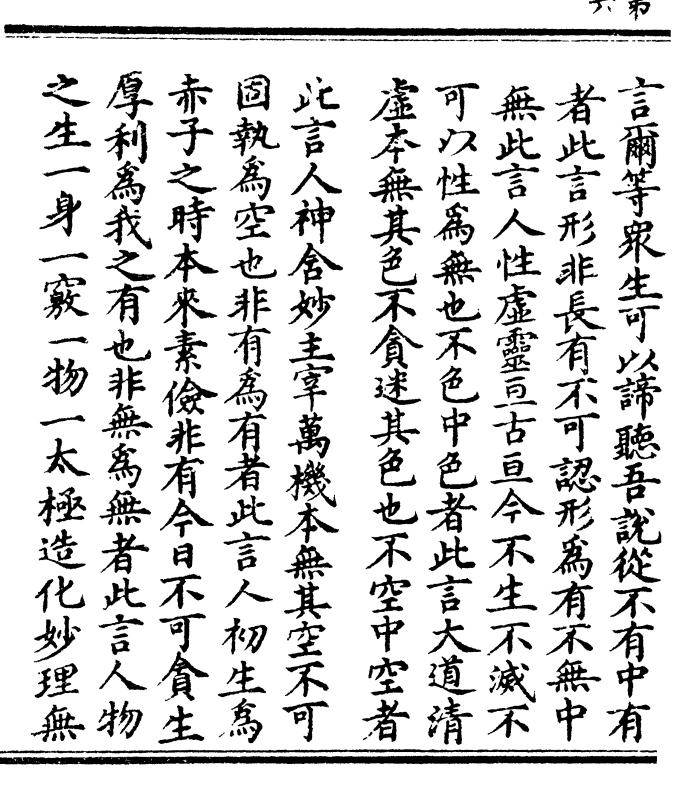 言爾等眾生可以諦聽吾說從不有中有
者此言形非長有不可認形為有不無中
無此言人性虛靈亘古亘今不生不滅不
可以性為無也不色中色者此言大道清
虛本無其色不貪迷其色也不空中空者
此言人神舍妙主宰萬機本無其空不可
固執為空也非有為有者此言人初生為
赤子之時本來素儉非有今日不可貪生
厚利為我之有也非無為無者此言人物
之生一身一竅一物一太極造化妙理無